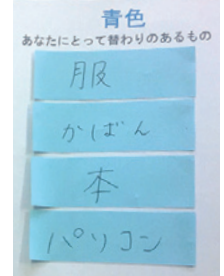 青色
あなたにとって替わりのあるもの
服
かばん
本
パソコン